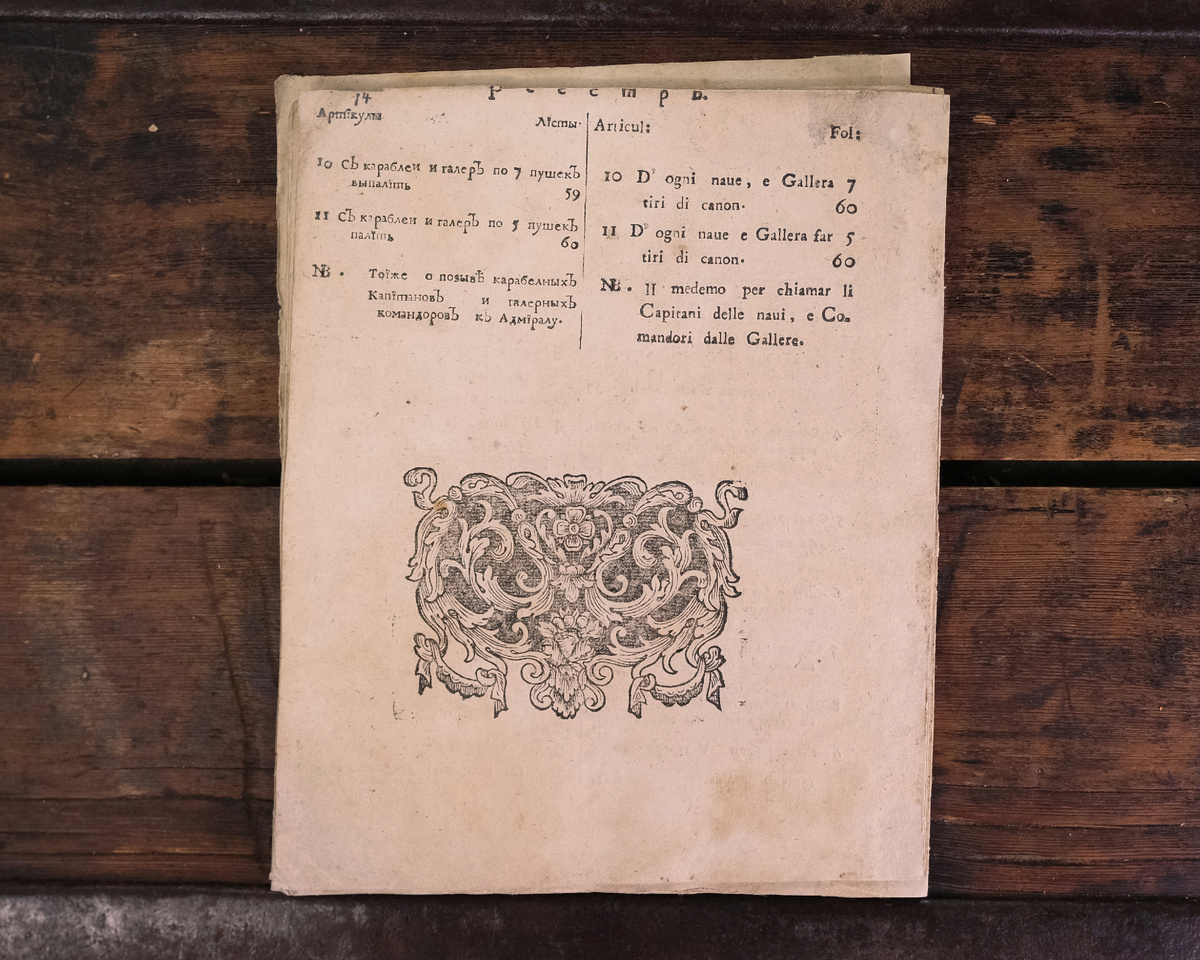 14
Реестръ.
Артїкулы Лїсты·
10 Съ караблеи и галеръ по 7 пушекъ
выпалїть 59
11 Съ караблеи и галеръ по 5 пушекъ
палїть 60
NB. Тоїже о позывѣ карабелныхъ
Капїтановъ и галерныхъ
командоровъ къ Адмїралу.
Articul: Fol:
10 D' ogni naue, e Gallera 7
tiri di canon. 60
11 D' ogni naue e Gallera far 5
tiri di canon. 60
NB. Il medemo per chiamar li
Capitani delle naui, e Co-
mandori dalle Gallere.